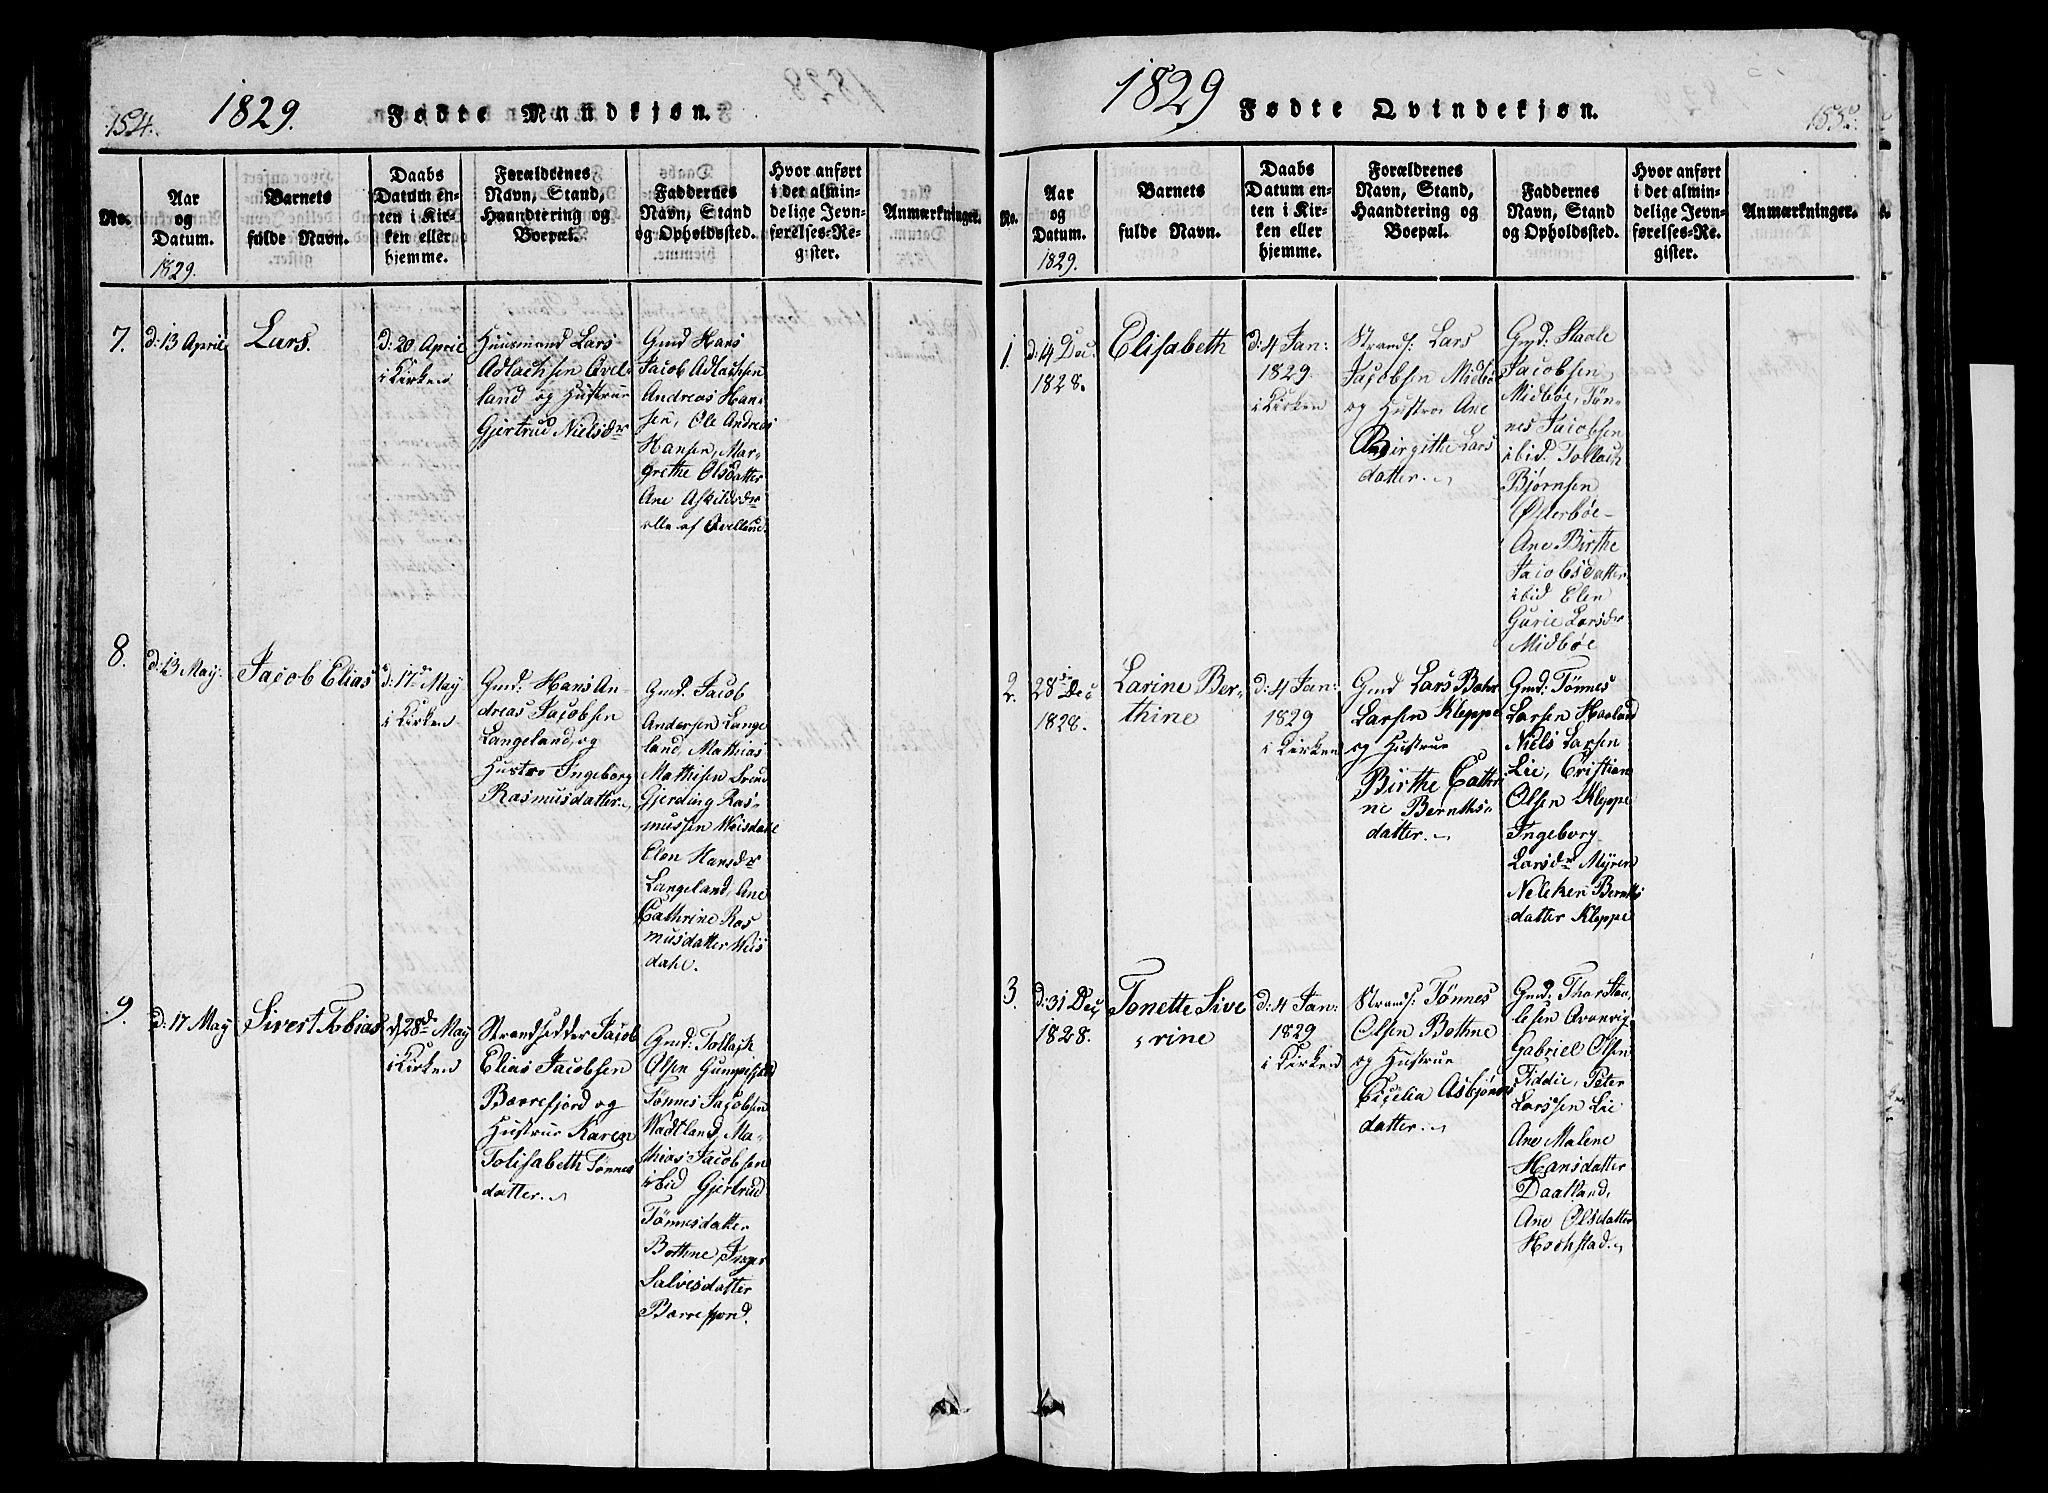 154.
1829.
Fødte Mandkjøn.
No.
Aar
og
Datum.
1829.
Barnets
fulde Navn.
Daabs
Datum en-
ten i Kir-
ken eller
hjemme.
Forældrenes
Navn, Stand,
Haandtering og
Boepæl.
Faddernes
Navn, Stand
og Opholdssted.
Hvor anført
i det almin-
delige Jevn-
førelses-Re-
gister.
Anmærkninger.
7.
d: 13 April
Lars.
d: 20 April
i Kirken
Huusmand Lars
Adlachsen Øvel-
land og Hustrue
Gjertrud Nielsdr
Gmd Hans
Jacob Adlachsen
Andreas Han-
sen, Ole Andreas
Hansen, Mar-
grethe Olsdatter
Ane Askildsdr
alle af Øvelland.
8.
d: 13 May.
Jacob Elias
d: 17de May
i Kirken
Gmd: Hans An-
dreas Jacobsen
Langeland, og
Hustro Ingeborg
Rasmusdatter.
Gmd: Jacob
Andersen Lange
land, Mathias
Mathisen Svend
Gjerding Ras-
mussen Weisdahl
Elen Hansdr
Langeland, Ane
Cathrine Ras
musdatter Weis
dahl.
9.
d: 17 May
Sivert Tobias
d: 28de May
i Kirken
Strandsidder Jacob
Elias Jacobsen
Barrefjord og
Hustrue Karen
Tolisabeth Tønnes
datter.
Gmd: Tollach
Olsen
Tønnes Jacobsen
Wadtland, Ma-
thias Jacobsen
ibid Gjertrud
Tønnesdatter
Bothne, Inger
Salvesdatter
Barrefjord.
1829
Fødte Qvindekjøn.
155.
No.
Aar
og
Datum.
1829.
Barnets
fulde Navn.
Daabs
Datum en-
ten i Kir-
ken eller
hjemme.
Forældrenes
Navn, Stand,
Haandtering og
Boepæl.
Faddernes
Navn, Stand
og Opholdssted.
Hvor anført
i det almin-
delige Jevn-
førelses-Re-
gister.
Anmærkninger.
1.
d: 14 Dec:
1828.
Elisabeth
d: 4 Jan:
1829.
i Kirken
Strands: Lars
Jacobsen Midbøe
og Hustroe Ane
Birgitthe Lars
datter.
Gmd: Staale
Jacobsen
Midbøe, Tøn-
nes Jacobsen
ibid. Tollach
Bjørnsen
Østerbøe-
Ane Birthe
Jacobsdatter
ibid Elen
Gurie Larsdr
Midbøe
2.
28de Dec
1828.
Larine Ber-
thine
d: 4 Jan:
1829
i Kirken
Gmd Lars Bahr
Larsen Kleppe
og Hustrue
Birthe Cathri
ne Bernths-
datter.
Gmd: Tønnes
Larsen Haaland
Niels Larsen
Lie, Cristian
Olsen Kleppe
Ingeborg
Larsdr Myren
Neleken Bernths
datter Kleppe
3.
d: 31 Dec
1828.
Tonette Sive
rine
d: 4 Jan:
1829.
i Kirken
Strands: Tønnes
Olsen Bothne
og Hustrue
Cicelia Asbjørns
datter.
Gmd: Thor Staa-
lesen
Gabriel Olsen
Fiddie, Peter
Larssen Lie
Ane Malene
Hansdatter
Daatland,
Ane Olsdatter
Hochstad.